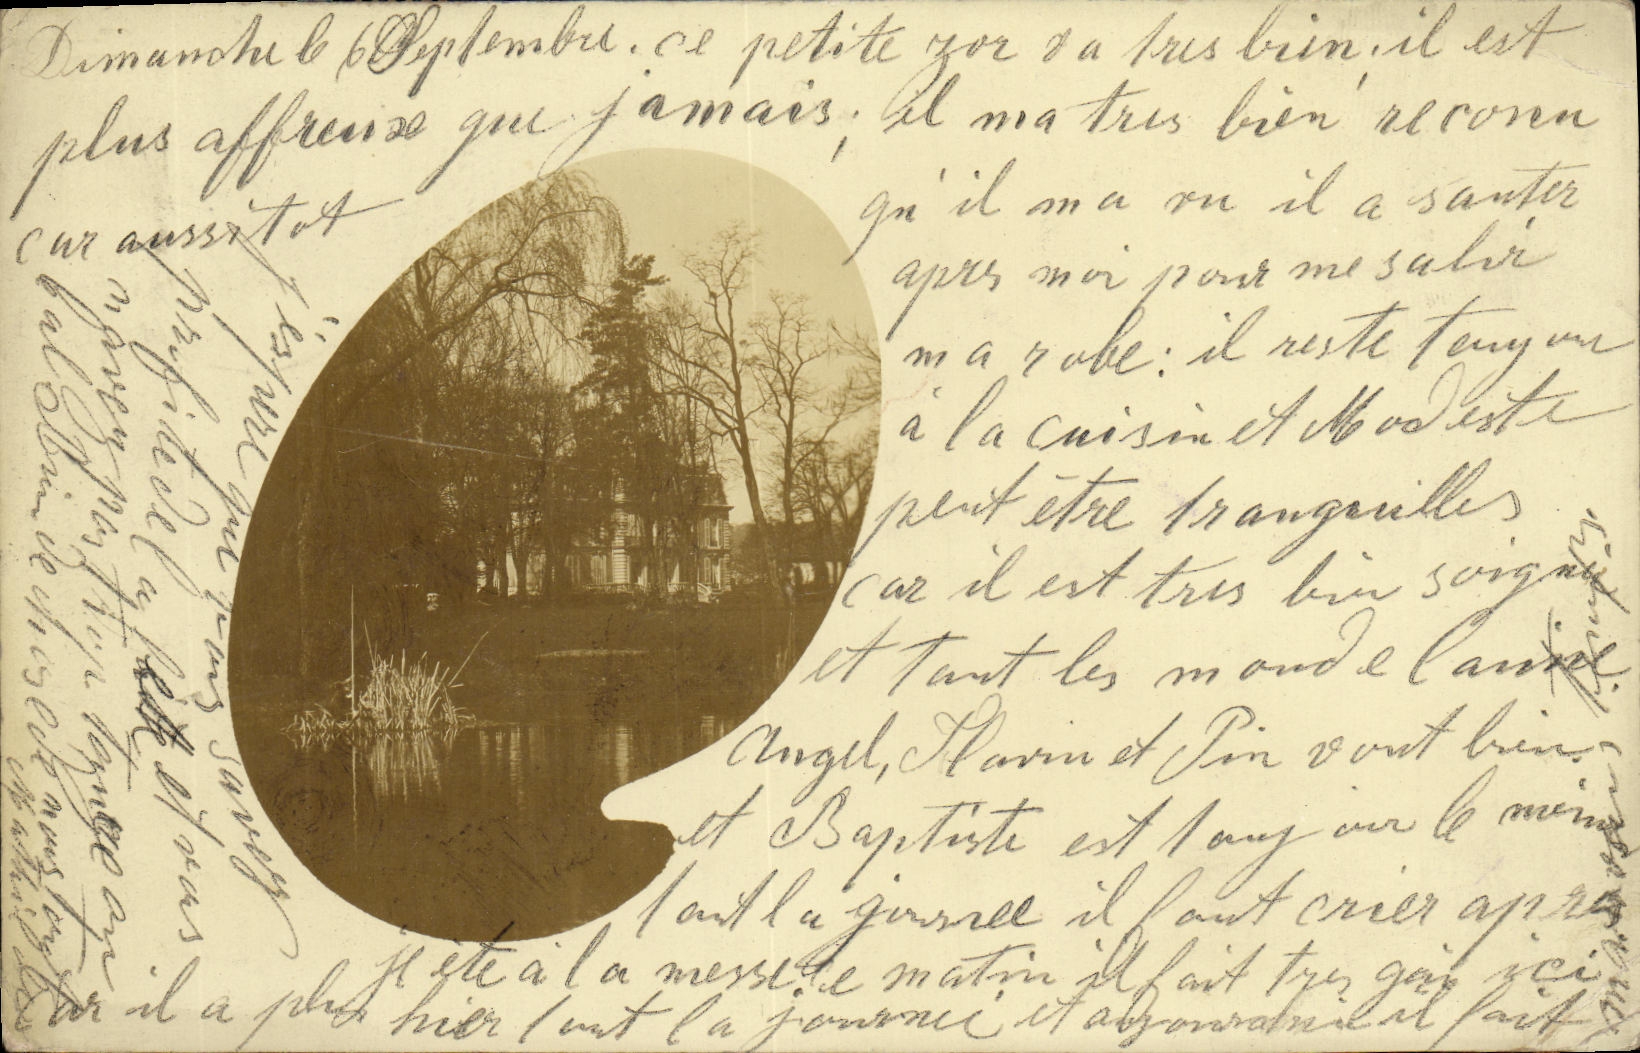 Dimanche le 6 Septembre. ce petite zor va tres bien, il est
plus affreuse que jamais; il ma tres bien reconu
car aussitot
qu'il ma vu il a santer
apres moi pour me salir
ma robe: il reste toujour
à la cuisin et Modeste
peut être tranquilles
car il est tres bien soigne
et tout les monde l'aime.
Angel, Flavin et Pin vont bien.
et Baptiste est toujour le meme
tout la journee il faut crier apres
je été à la messe le matin il fait tres gai ici
car il a plus hier tout la journeé et aujourdhui il fait
j'éspere que vous savez
profitéde la fête et vous
navez pas trop
bal